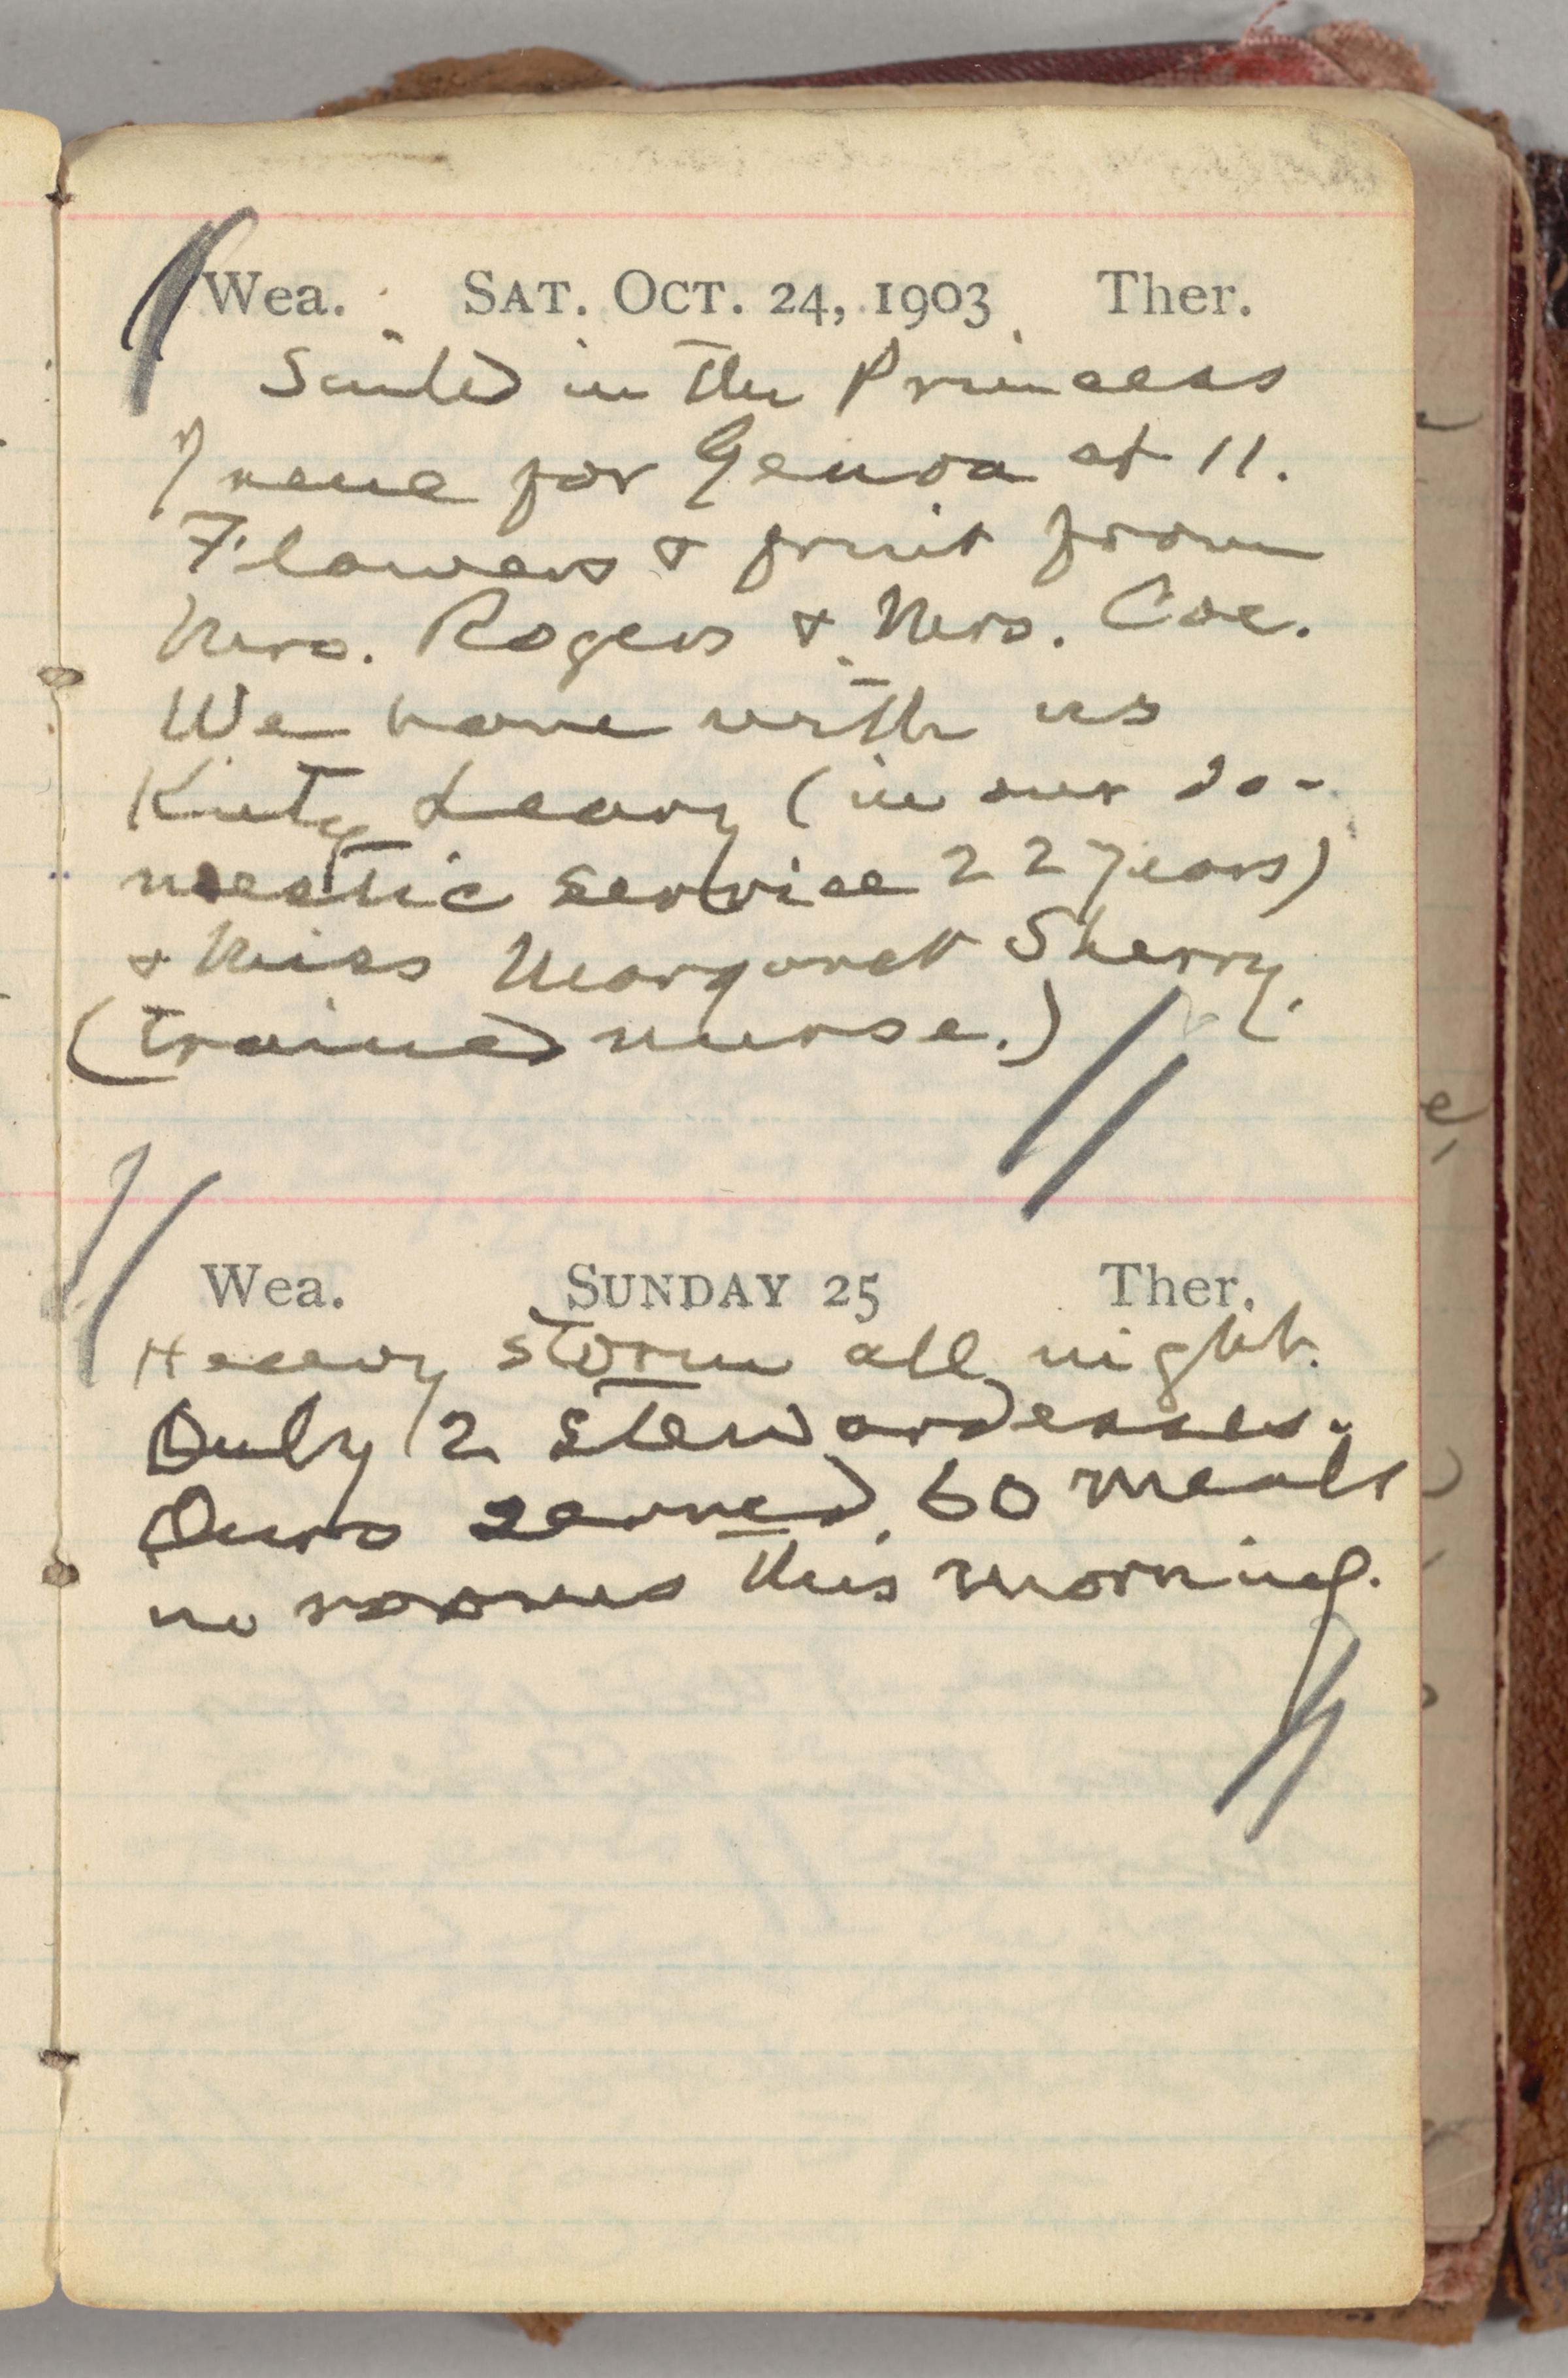 Wea. SAT. OCT. 24, 1903 Ther.
Sailed in the Princess
Irene for Genoa at 11.
Flowers & fruit from
Mrs. Rogers & Mrs. Coe.
We have with us
Katy Leary (in our do-
mestic service 22 years)
& Miss Margaret Sherry.
(trained nurse.)
Wea. SUNDAY 25 Ther.
Heavy storm all night.
Only 2 stewardesses.
Ours served 60 meals
in rooms this morning.